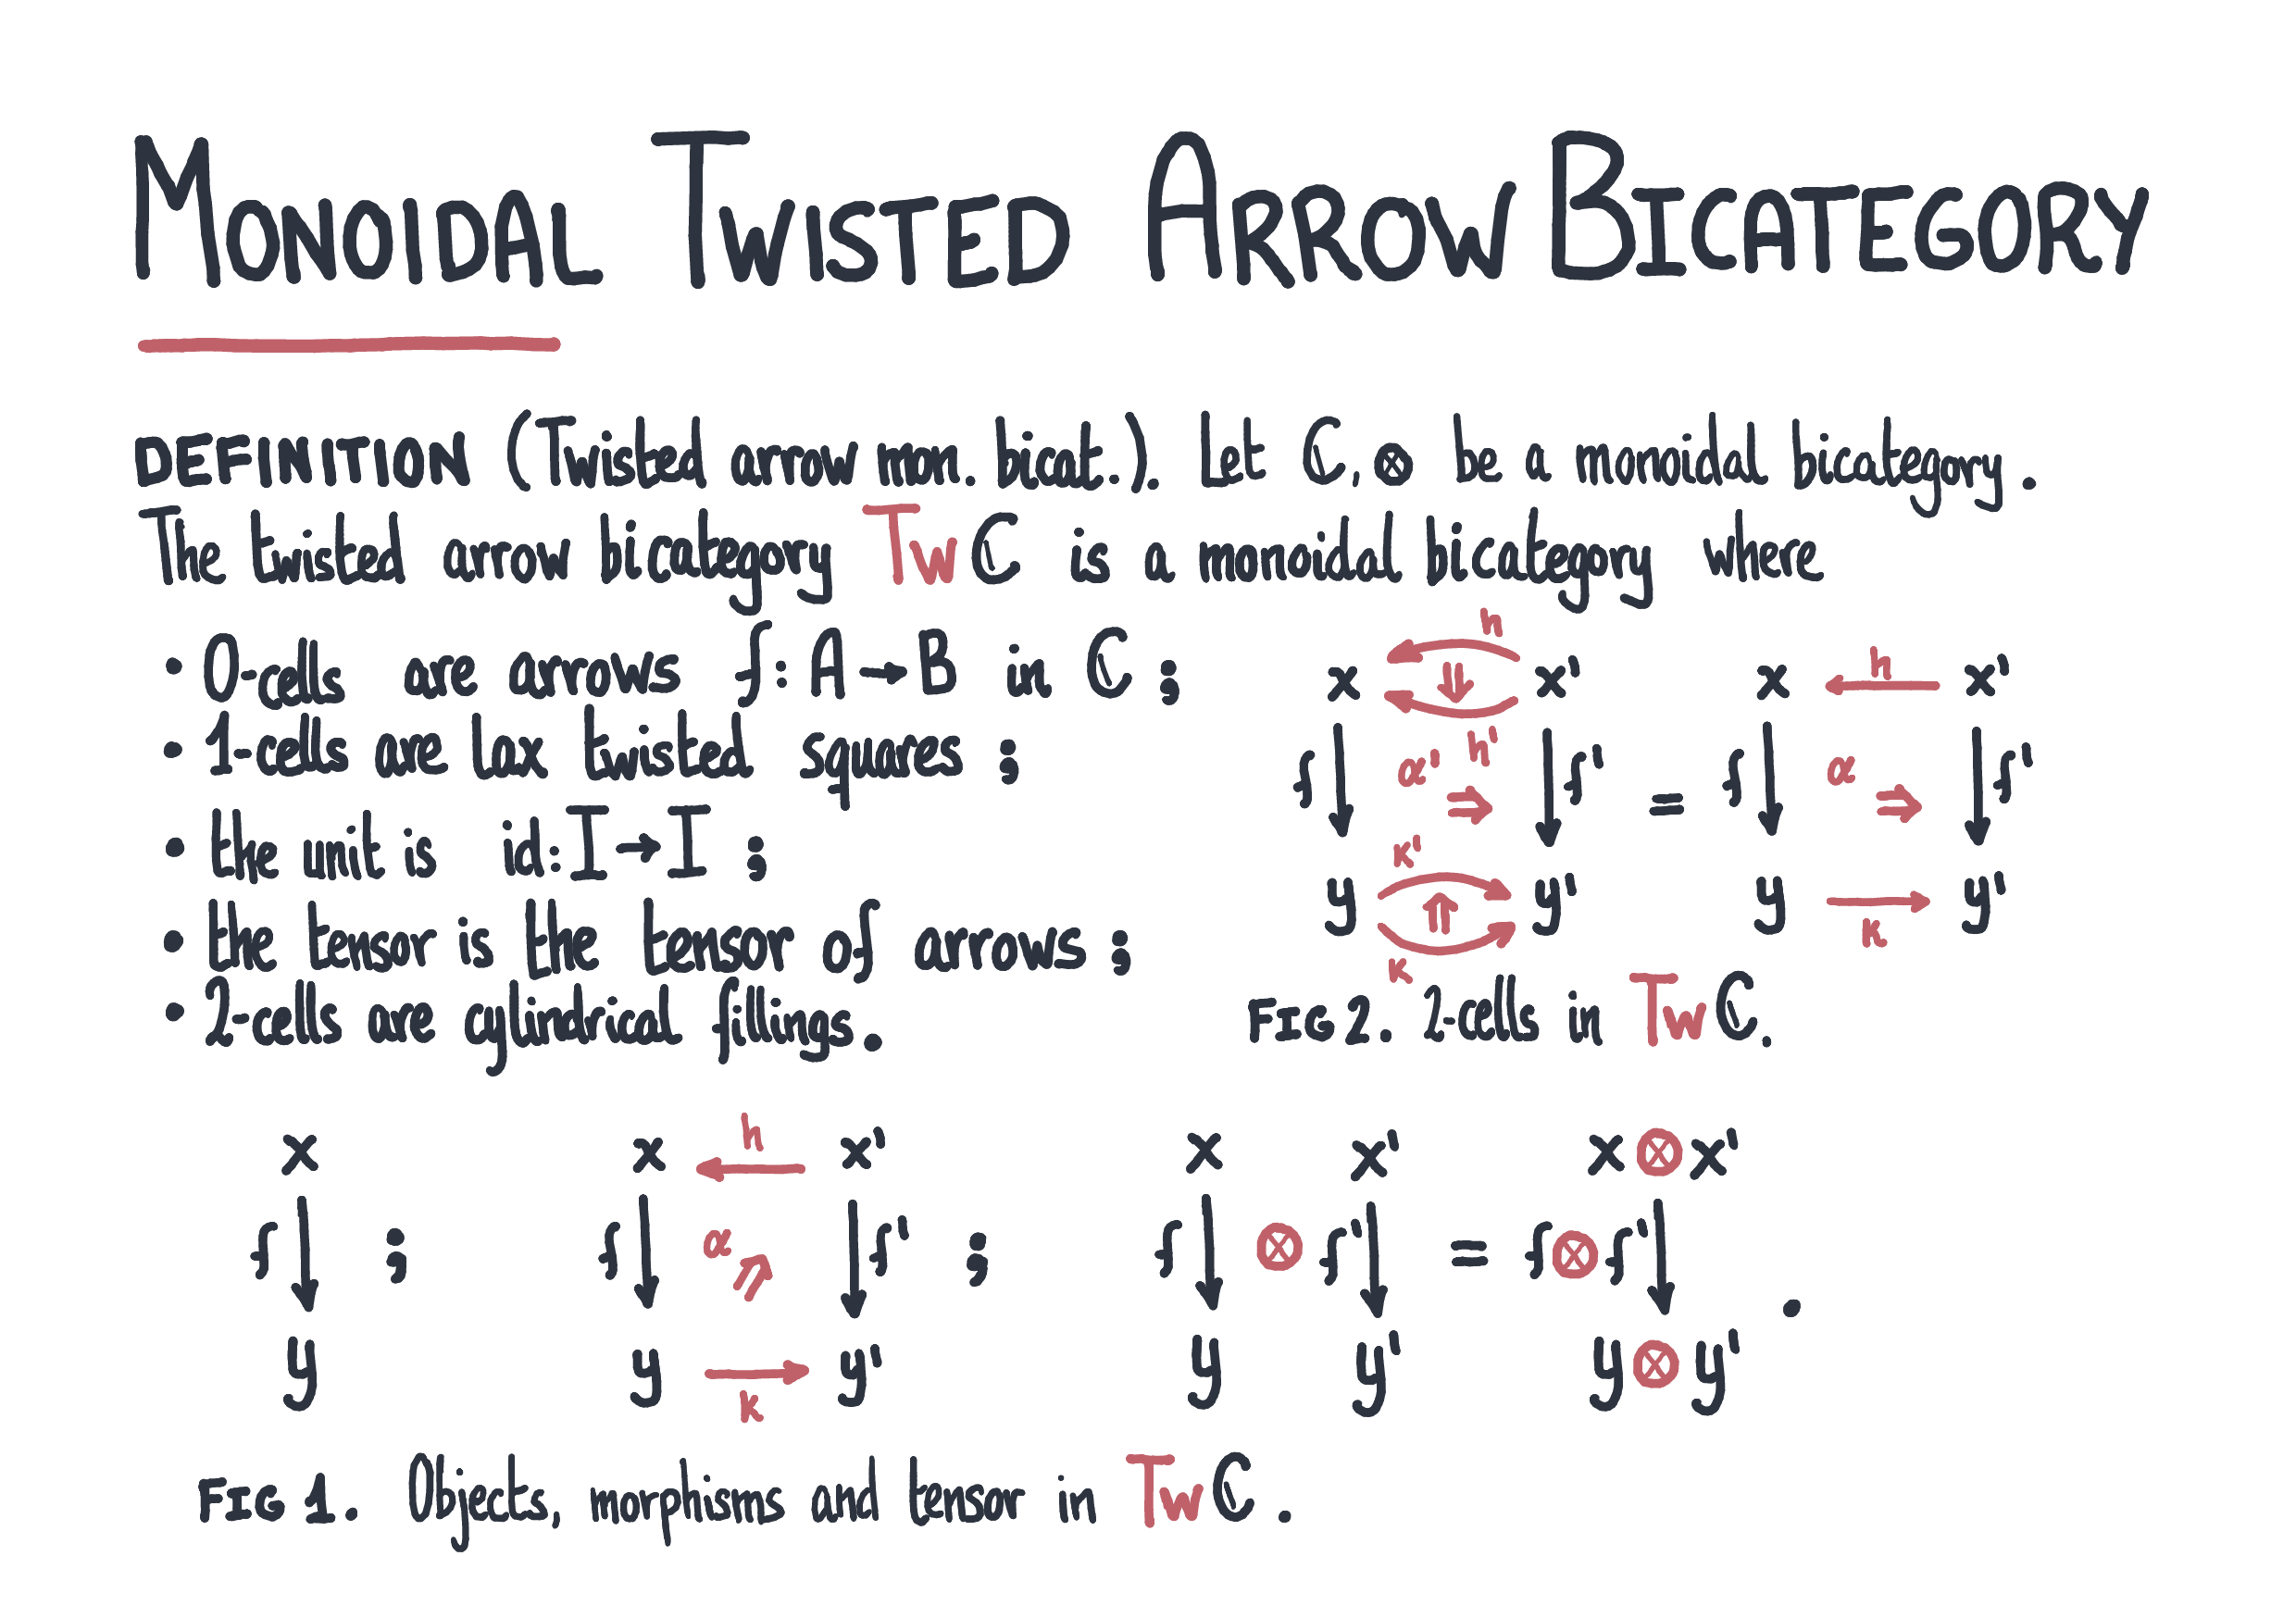 MONOIDAL TWISTED ARROW BICATEGORY
DEFINITION (Twisted arrow mon. bicat.). Let ℂ, ⊗ be a monoidal bicategory.
The twisted arrow bicategory Tw ℂ is a monoidal bicategory where
• 0-cells are arrows f: A → B in ℂ ;
• 1-cells are lax twisted squares ;
• the unit is id: I → I ;
• the tensor is the tensor of arrows ;
• 2-cells are cylindrical fillings.
h
x ⇓ x' x h x'
h'
f α' ⇒ f' = f α ⇒ f'
k'
y ⇑ y' y y'
k k
FIG 2. 2-cells in Tw ℂ.
x x h x' x x' x ⊗ x'
f ; f α ⇒ f' ; f ⊗ f' = f ⊗ f' .
y y y' y y' y ⊗ y'
k
FIG 1. Objects, morphisms and tensor in Tw ℂ.